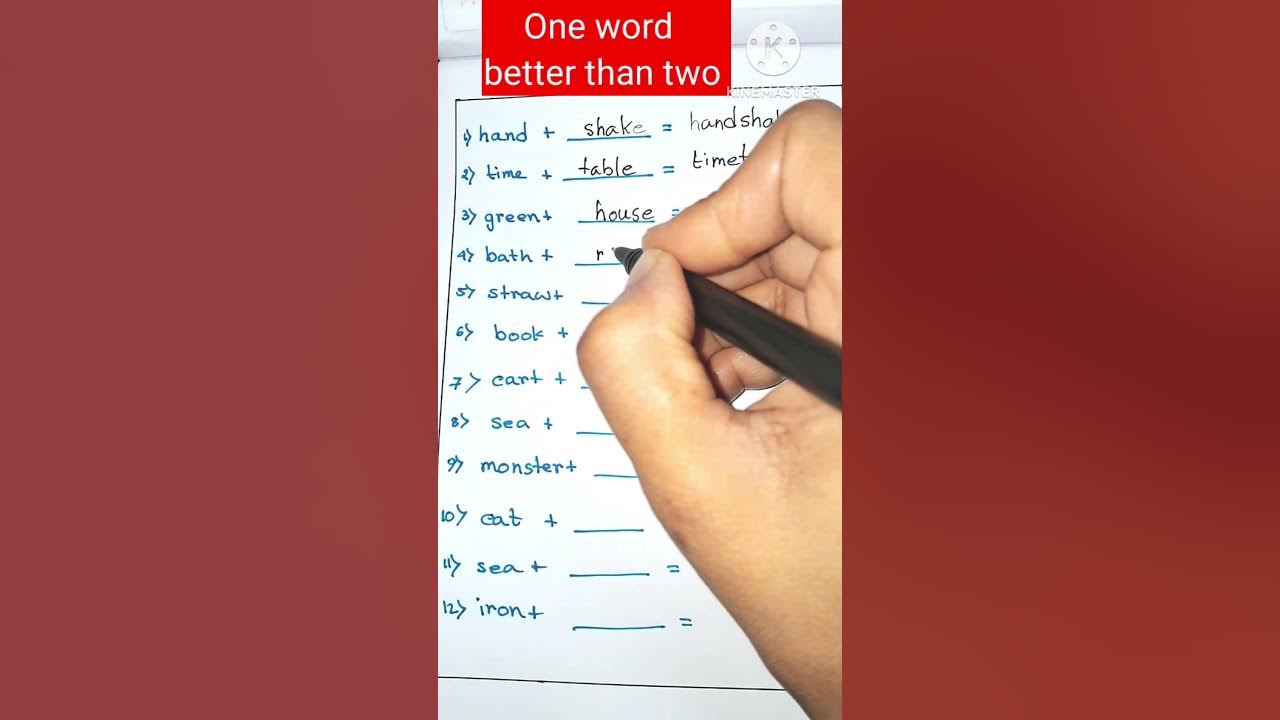 One word
better than two
K
KINEMASTER
1) hand + shake = handsha
2) time + table = timet
3) green + house =
4) bath + r
5) straw +
6) book +
7) cart +
8) sea +
9) monster +
10) cat +
11) sea + =
12) iron + =